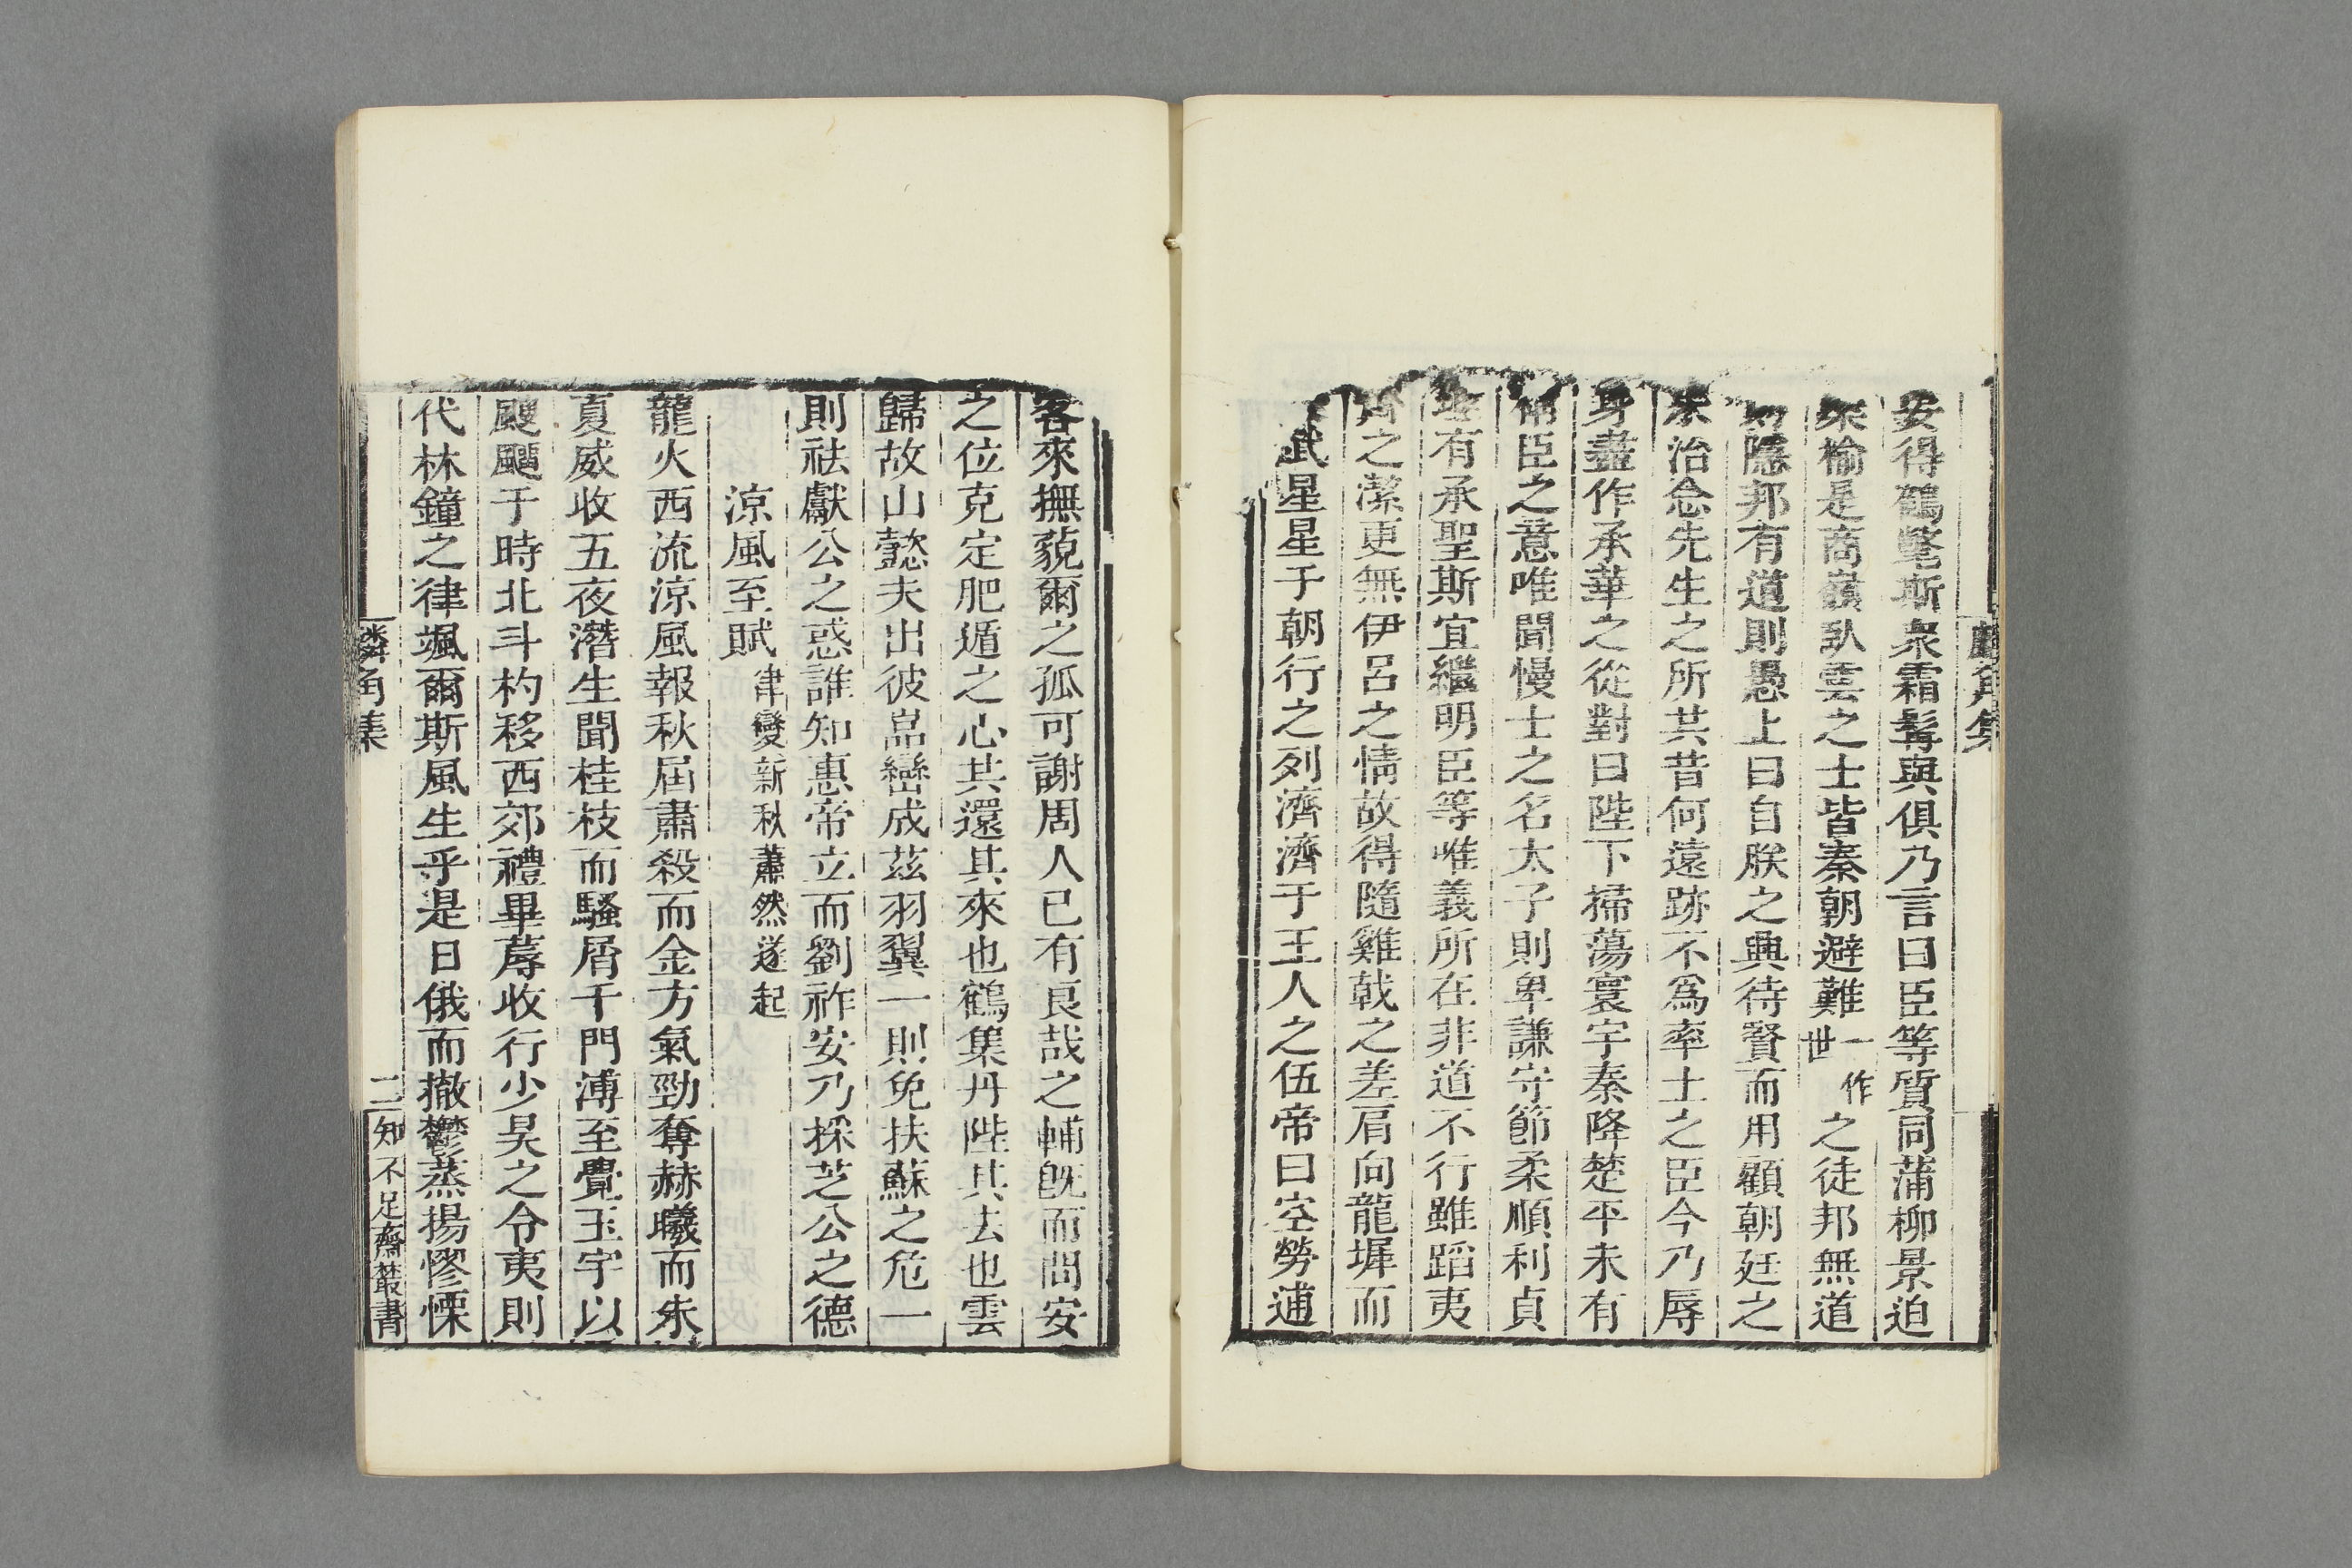 麟角集
安得鶴氅斯衆霜髯與俱乃言曰臣等質同蒲柳景迫
桑榆是商嶺臥雲之士皆秦朝避難一作世之徒邦無道
則隱邦有道則愚上曰自朕之興待賢而用顧朝廷之
未治念先生之所其昔何遠跡不爲率土之臣今乃辱
身盡作承華之從對曰陛下掃蕩寰宇秦降楚平未有
備臣之意唯聞慢士之名太子則卑謙守節柔順利貞
有承聖斯宜繼明臣等唯義所在非道不行雖蹈夷
齊之潔更無伊呂之情故得隨雞戟之差肩向龍墀而
武星星于朝行之列濟濟于王人之伍帝曰空勞逋
客來撫藐爾之孤可謝周人已有良哉之輔旣而啚安
之位克定肥遁之心其還其來也鶴集丹陛其去也雲
歸故山懿夫出彼嵓巒成茲羽翼一則免扶蘇之危一
則祛獻公之惑誰知惠帝立而劉祚安乃採芝公之德
涼風至賦律變新秋蕭然遂起
龍火西流涼風報秋屆肅殺而金方氣勁奪赫曦而朱
夏威收五夜潛生聞桂枝而騷屑千門溥至覺玉宇以
颼飀于時北斗杓移西郊禮畢蓐收行少昊之令夷則
代林鐘之律颯爾斯風生乎是日俄而撤鬱蒸揚憀慄
麟角集
二
知不足齋叢書